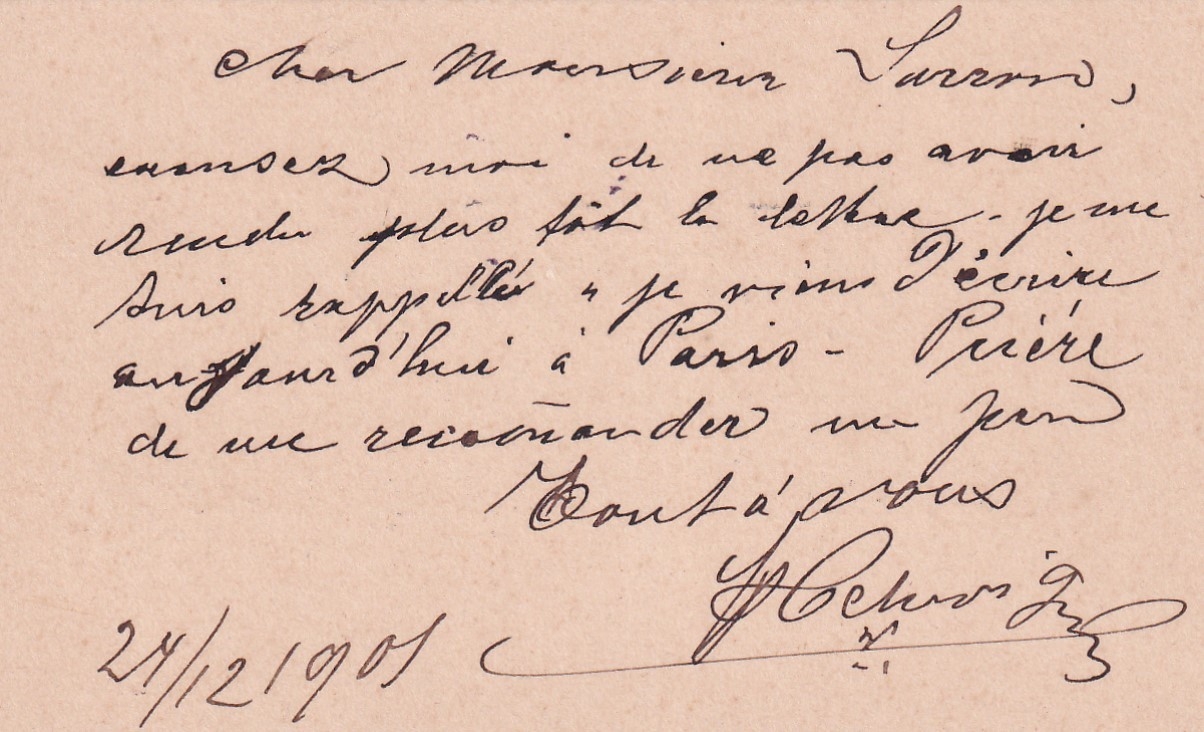 Cher Monsieur
excusez moi de ne pas avoir
rendu plus tôt la lettre - je me
suis rappellé je viens d'écrire
aujourd'hui à Paris - Prière
de me recomander un peu
Tout à vous
24/12 1901